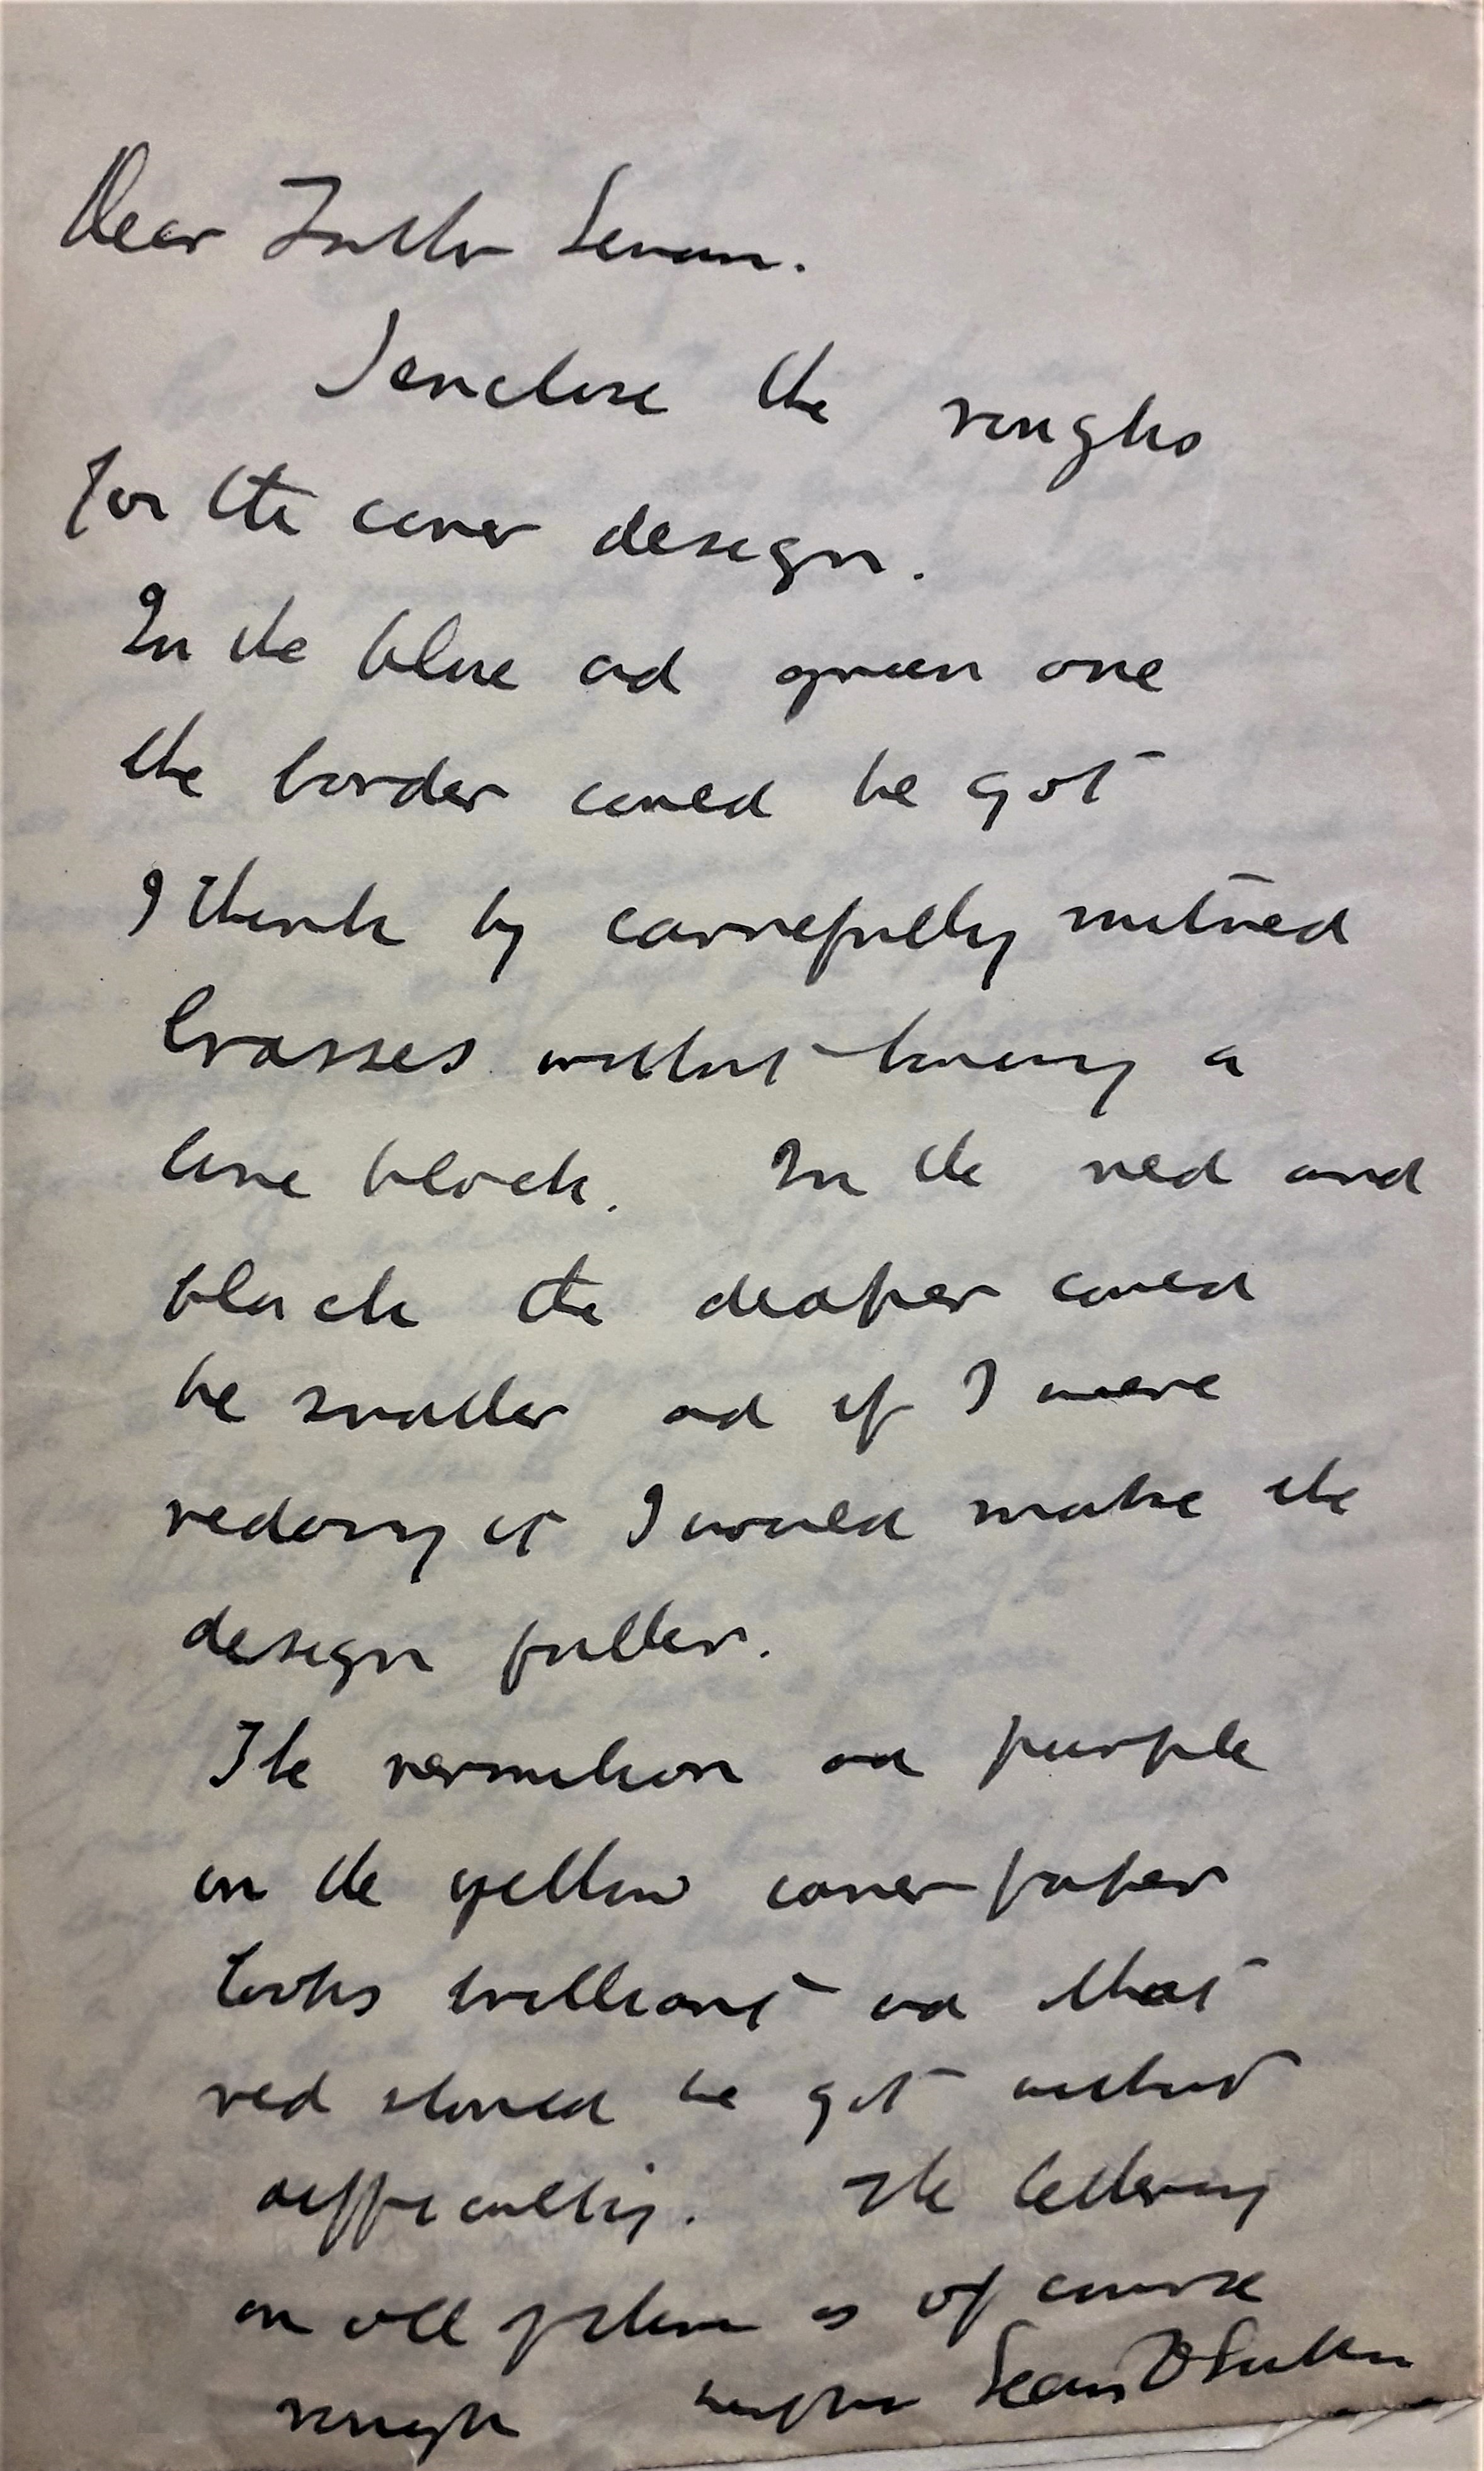 Dear Father Senan.
I enclose the roughs
for the cover design.
In the blue and green one
the border could be got
I think by carrefully mitred
brasses without having a
line block. In the red and
black the diaper could
be smaller and if I were
redoing it I would make the
design fuller.
The vermilion and purple
on the yellow cover paper
looks brilliant and that
red should be got without
difficulty. The lettering
on all of them is of course
rough Sean O'Sullivan